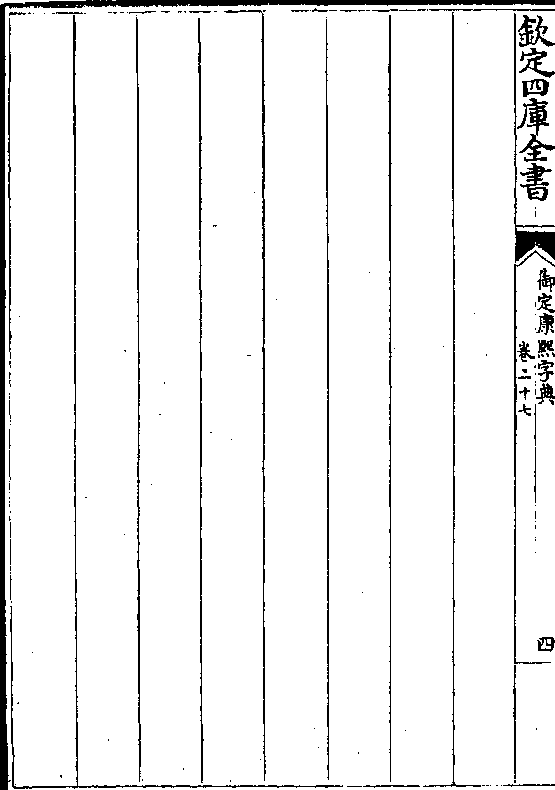 欽定四庫全書
御定康熙字典
卷二十七
四